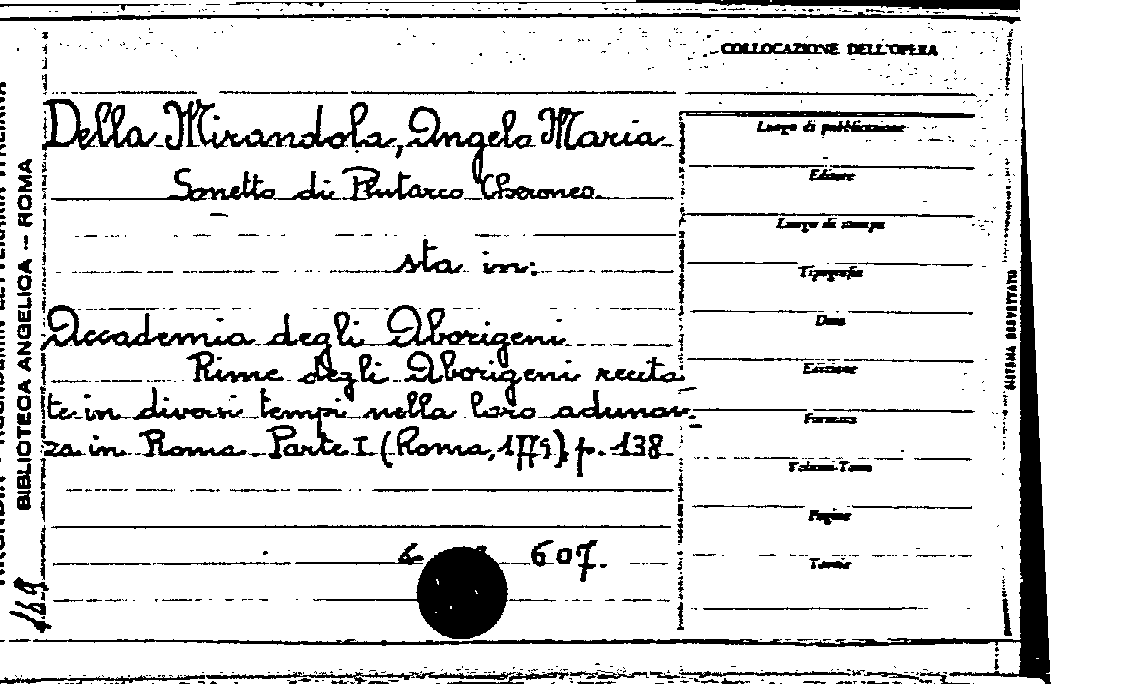 COLLOCAZIONE DELL'OPERA
Della Mirandola, Angelo Maria
Sonetto di Plutarco Cheroneo.
sta in:
Accademia degli Aborigeni
Rime degli Aborigeni recita
te in diversi tempi nella loro adunan-
za in Roma. Parte I (Roma, 1779), p. 138
607.
Luogo di pubblicazione
Editore
Luogo di stampa
Tipografia
Data
Edizione
Formato
Volumi-Tomi
Pagine
Tavole
BIBLIOTECA ANGELICA – ROMA
169